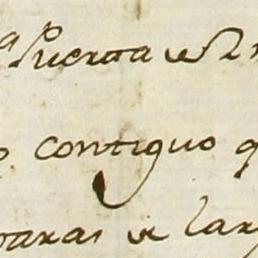 Puerta de
contiguo q
varas de larg